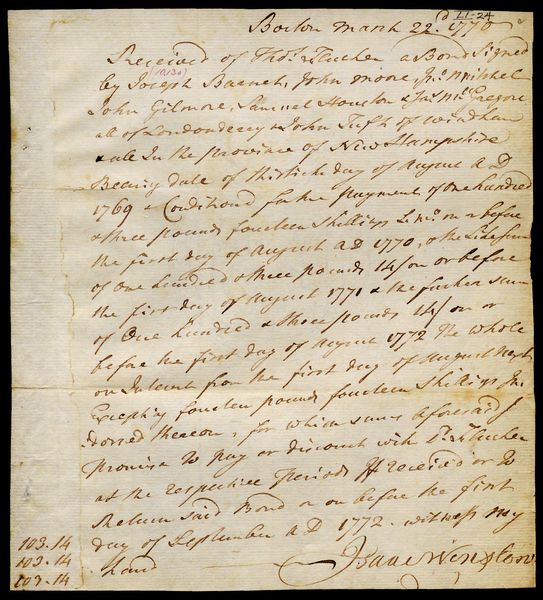 11-24
Boston March 22d. 1770
Received of Thos. Flucker a Bond Signed
(10130)
by Joseph Barnet, John moore, Jno. Mitchel
John Gilmore, Samuel Houston & Jas. Mc Gregore
all of Londonderry & John Tuft of Windham
& all In the Province of New Hampshire
Bearing date of thirtieth day of August A D
1769 & Conditiond for the payment of one hundred
& three pounds fourteen Shillings on or before
the first day of August A D 1770, & the Like Sum
of one hundred & three pounds 14/ on or before
the first day of August 1771 & the further sum
of One hundred & three pounds 14/ on or
before the first day of August 1772 The whole
on Interest from the first day of August
Excepting fourteen pounds fourteen Shillings In
dorsed thereon, for which sums aforesaid I
promise to pay or discount with Flucker
at the respective periods If received or to
Return said Bond on or before the first
day of September A D 1772. witness my
hand
Isaac Winslow
103.14
103.14
103.14